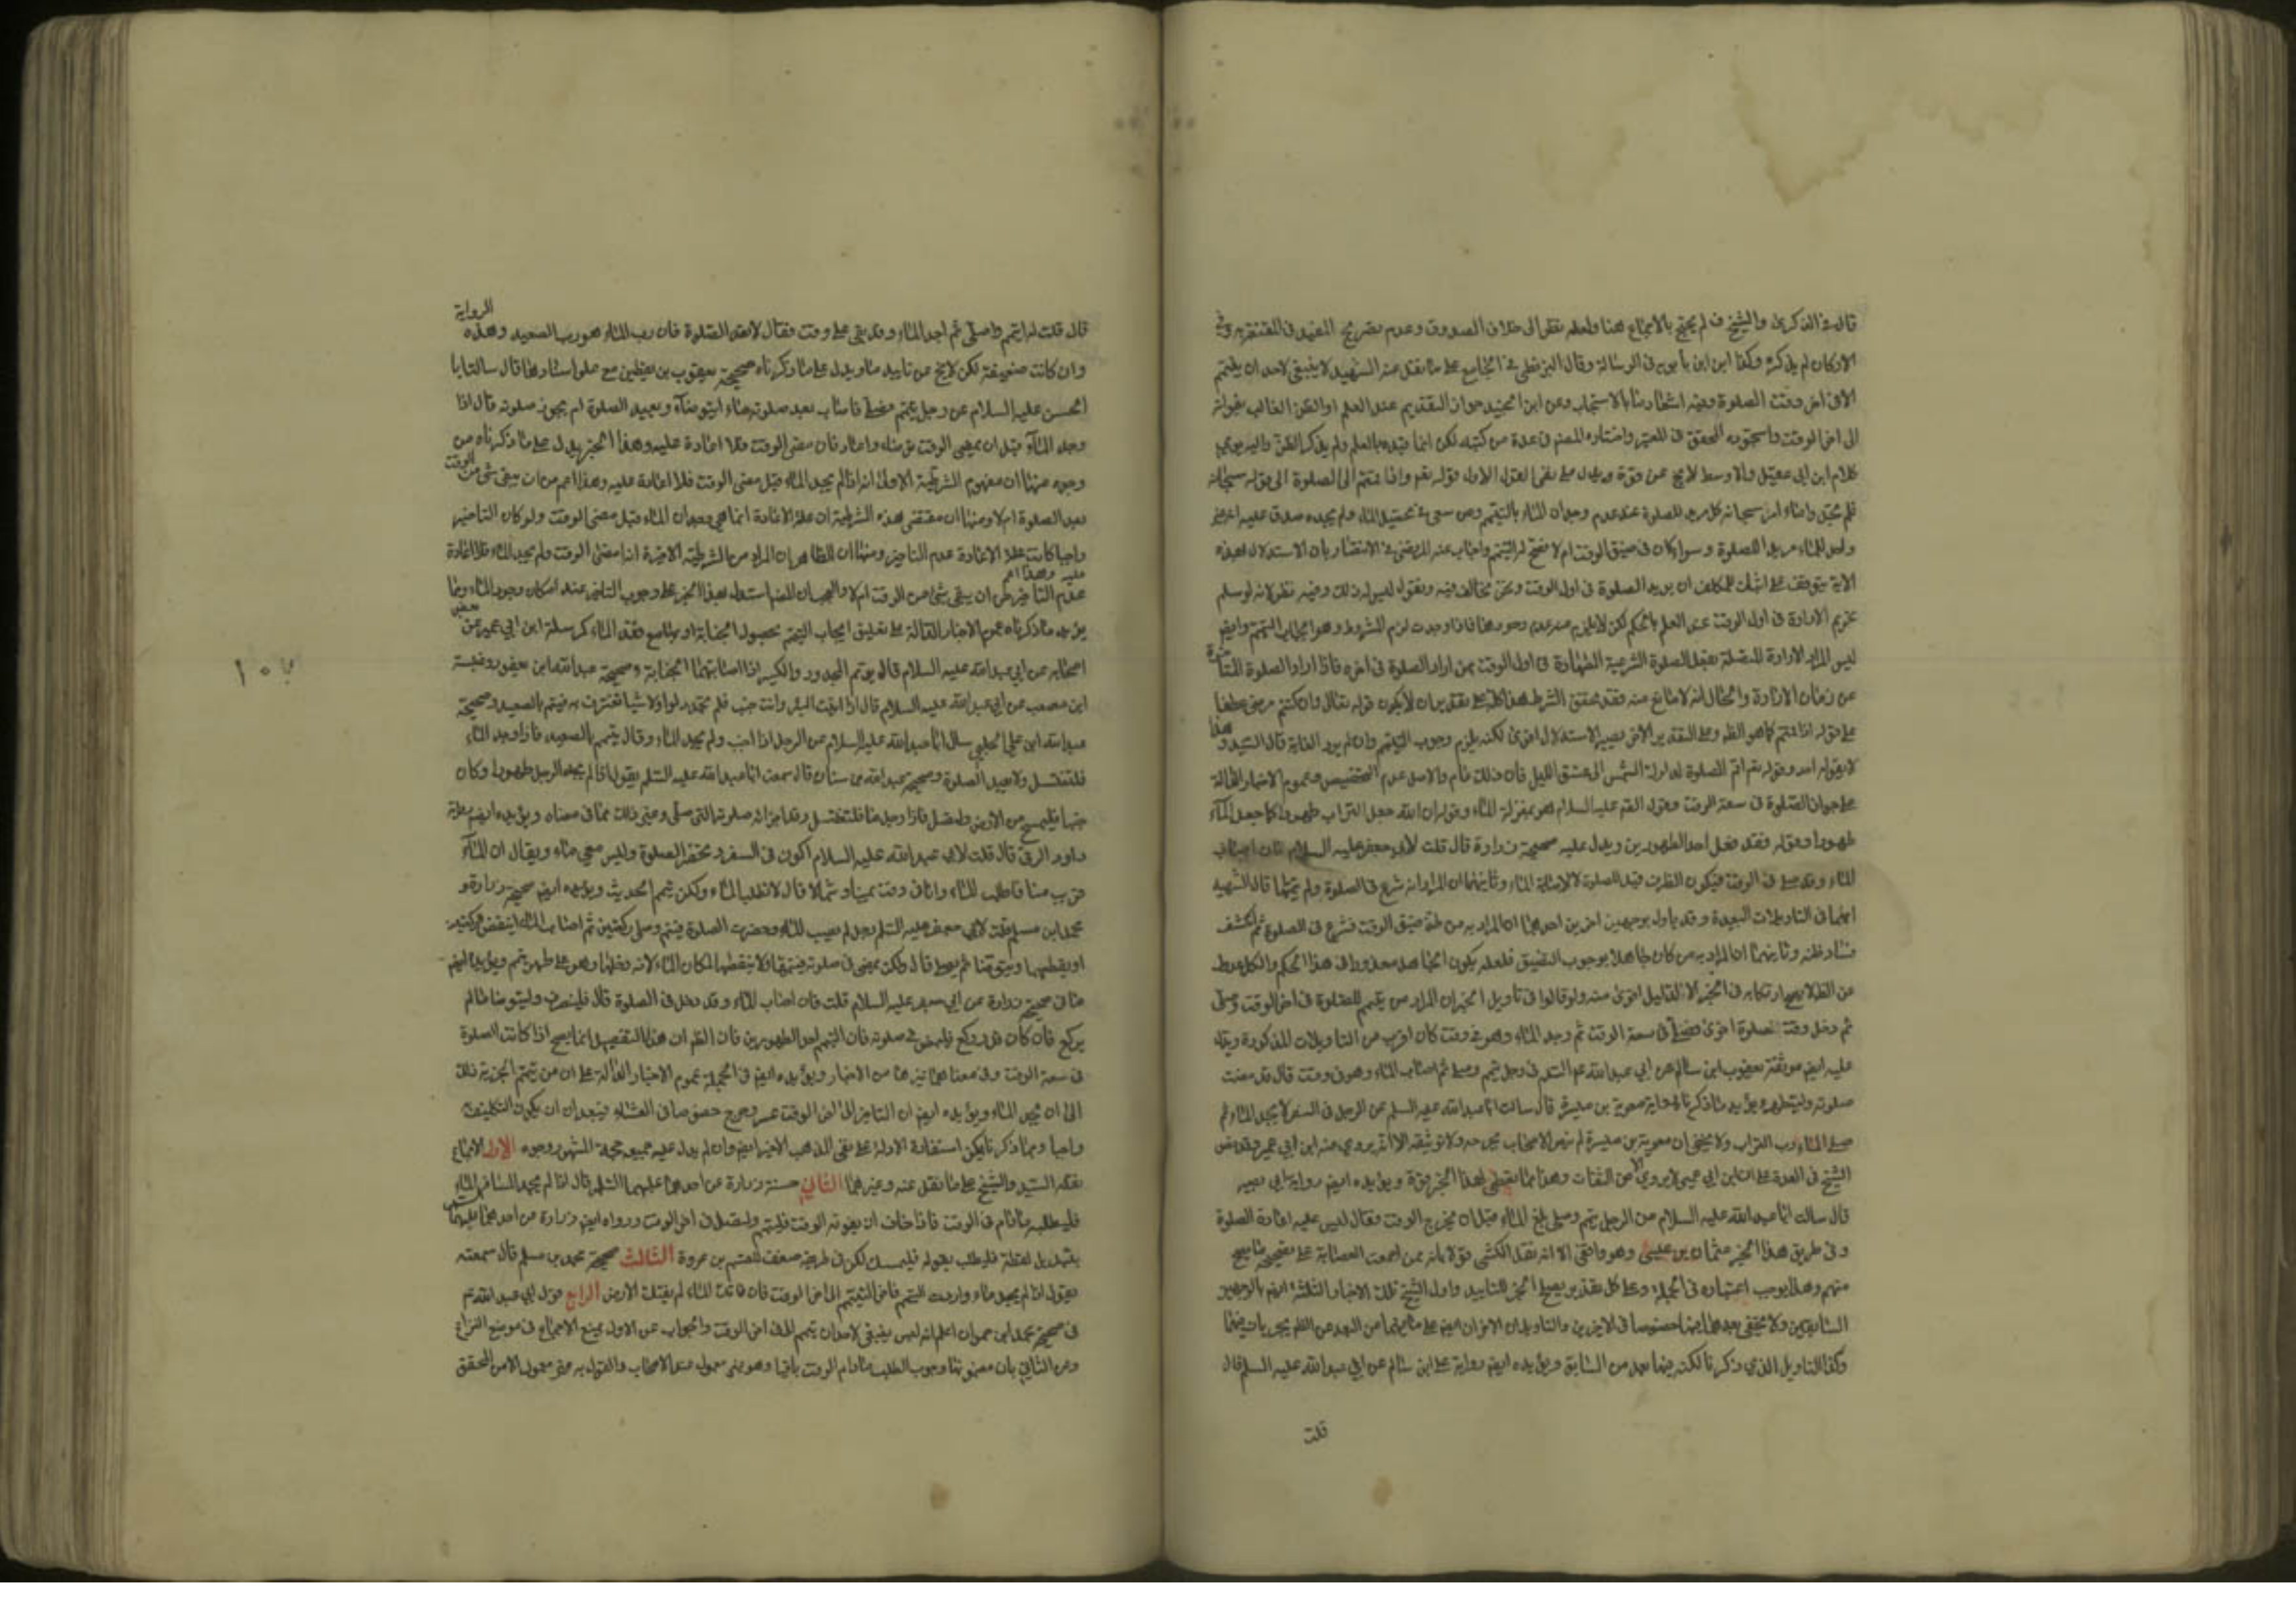 قال في الذكرى والشيخ في لم يحتج بالاجماع هنا ولعله نظر الى خلاف الصدوق وعدم تصريح المفيد في المقنعة به وفي
الاركان لم يذكره وكذا ابن ابن بابويه في الرسالة وقال البزنطي في الجامع على ما نقل عنه الشهيد لا ينبغي لاحد ان يتيمم
الا في اخر وقت الصلوة وفيه اشعار ما بالاستحباب وعن ابن الجنيد جواز التقديم عند العلم او الظن الغالب بفواته
الى اخر الوقت واستجوده المحقق في المعتبر واختاره المصنف في عدة من كتبه لكن انما قيده بالعلم ولم يذكر الظن واليه يومي
كلام ابن ابي عقيل والاوسط لا يخ عن قوة ويدل على نفي القول الاول قوله تعالى واذا قمتم الى الصلوة الى قوله سبحانه
فلم تجدوا ماء امر سبحانه كل مريد للصلوة عند عدم وجدان الماء بالتيمم ومن سعى في تحصيل الماء ولم يجده صدق عليه انه غير
واجد للماء مريد للصلوة وسواء كان في ضيق الوقت ام لا فصح له التيمم واجاب عنه المرتضى في الانتصار بان الاستدلال بهذه
الاية يتوقف على اثبات للمكلف ان يريد الصلوة في اول الوقت ونحن نخالف فيه ونقول ليس له ذلك وفيه نظر لانه لو سلم
تحريم الارادة في اول الوقت عند العلم بالحكم لكن لا يلزم منه عدم وجودها فاذا وجدت لزم المشروط وهو ايجاب التيمم وايضا
ليس المراد الارادة المتصلة بفعل الصلوة الشرعية الطهارة في اول الوقت بمن اراد الصلوة في اخره فاذا اراد الصلوة المتاخرة
عن زمان الارادة والحال انه لا مانع منه فقد تحقق الشرط هذا كله على تقدير ان لا يكون قوله تعالى وان كنتم مرضى عطفا
على قوله اذا قمتم كما هو الظ وعلى التقدير الاخر يصير الاستدلال اقوى لكنه يلزم وجوب التيمم وان لم يرد الغاية قال السيد وهذا
لا يقوله احد وقوله تعالى اقم الصلوة لدلوك الشمس الى غسق الليل فان ذلك عام والاصل عدم التخصيص وعموم الاخبار الدالة
على جواز الصلوة في سعة الوقت وقول الصادق عليه السلام هو بمنزلة الماء وقوله ان الله جعل التراب طهورا كما جعل الماء
طهورا وقوله فقد فعل احد الطهورين ويدل عليه صحيحة زرارة قال قلت لابي جعفر عليه السلام فان اصاب
الماء وقد صلى في الوقت فيكون الظرف قيد الصلوة لا لاصابة الماء وثانيهما ان المراد انه شرع في الصلوة ولم يتمها قال الشهيد
انهما في التاويلات البعيدة وقد يأول بوجهين اخرين احدهما ان المراد به من ظن ضيق الوقت فشرع في الصلوة ثم انكشف
فساد ظنه وثانيهما ان المراد به من كان جاهلا بوجوب التضييق فلعله يكون الجاهل معذورا في هذا الحكم والكل عدول
عن الظ لا يصح ارتكابه في الخبر الا لدليل اقوى منه ولو قالوا في تاويل الخبر ان المراد من تيمم للصلوة في اخر الوقت وصلى
ثم دخل وقت الصلوة اخرى في سعة الوقت ثم وجد الماء وهو في وقت كان اقرب من التاويلات المذكورة ويدل
عليه ايضا موثقة يعقوب ابن سالم عن ابي عبد الله عليه السلم في رجل تيمم وصلى ثم اصاب الماء وهو في وقت قال قد مضت
صلوته وليتطهر ويؤيد ما ذكرنا رواية معوية بن ميسرة قال سالت ابا عبد الله عليه السلم عن الرجل في السفر لا يجد الماء ثم
صلى الماء رب التراب ولا يخفى ان معوية بن ميسرة لم ينص الاصحاب على مدحه ولا توثيقه الا انه يروي عنه ابن ابي عمير وقد نص
الشيخ في العدة على ان ابن ابي عمير لا يروي الا عن الثقات وهذا مما يعطي لهذا الخبر قوة ويؤيده ايضا رواية ابي بصير
قال سالت ابا عبد الله عليه السلام عن الرجل تيمم وصلى بلغ الماء قبل ان يخرج الوقت فقال ليس عليه اعادة الصلوة
وفي طريق هذا الخبر عثمان بن عيسى وهو واقفي الا انه نقل الكشي قولا بانه ممن اجمعت العصابة على تصحيح ما يصح
منهم وهذا يوجب اعتباره في الجملة وعلى كل تقدير يصلح الخبر للتاييد واول الشيخ تلك الاخبار الثلثة ايضا بالوجهين
السابقين ولا يخفى بعدهما ايضا خصوصا في الاخيرين والتاويلان الاخران ايضا على ما فيهما من البعد عن الظ يجريان فيهما
وكذا التاويل الذي ذكرنا لكنه فيها بعد من السابق ويؤيده ايضا رواية علي ابن سالم عن ابي عبد الله عليه السلم قال
قلت
الرواية
قال قلت له اتيمم واصلي ثم اجد الماء وقد بقي علي وقت فقال لا تعد الصلوة فان رب الماء هو رب الصعيد وهذه
وان كانت ضعيفة لكن لا يخ عن تاييد ما ويدل على ما ذكرناه صحيحة يعقوب بن يقطين مع علو اسنادها قال سالت ابا
الحسن عليه السلام عن رجل تيمم فصلى فاصاب بعد صلوته ماء ايتوضأ ويعيد الصلوة ام يجوز صلوته قال اذا
وجد الماء قبل ان يمضي الوقت توضأ واعاد فان مضى الوقت فلا اعادة عليه وهذا الخبر يدل على ما ذكرناه من
وجوه منها ان مفهوم الشرطية الاولى انه اذا لم يجد الماء قبل مضي الوقت فلا اعادة عليه وهذا اعم من ان يبقى شئ من الوقت
بعد الصلوة ام لا ومنها ان مقتضى هذه الشرطية ان علة الاعادة انما هي وجدان الماء قبل مضي الوقت ولو كان التاخير
واجبا كانت علة الاعادة عدم التاخير ومنها ان الظاهر ان المراد من الشرطية الاخيرة اذا مضى الوقت ولم يجد الماء فلا اعادة
عليه وهذا اعم
عدم التاخير من ان يبقى شئ من الوقت ام لا والعجب ان المصنف استدل بهذا الخبر على وجوب التاخير عند امكان وجود الماء ومما
يؤيد ما ذكرناه عموم الاخبار الدالة على تعليق ايجاب التيمم بحصول الجنابة او ما مع فقد الماء كمرسلة ابن ابي عمير عن بعض
اصحابه عن ابي عبد الله عليه السلام قال يؤمم المجدور والكسير اذا اصابتهما الجنابة وصحيحة عبد الله ابن يعفور وعنبسة
ابن مصعب عن ابي عبد الله عليه السلام قال اذا اتيت البئر وانت جنب فلم تجد دلوا ولا شيئا تغترف به فتيمم بالصعيد وصحيحة
عبيد الله ابن علي الحلبي سال ابا عبد الله عليه السلام عن الرجل اذا اجنب ولم يجد الماء وقال يتيمم بالصعيد فاذا وجد الماء
فليغتسل ولا يعيد الصلوة وصحيحة عبد الله بن سنان قال سمعت ابا عبد الله عليه السلم يقول اذا لم يجد الرجل طهورا وكان
جنبا فليمسح من الارض وليصل فاذا وجد ماء فليغتسل وقد اجزأته صلوته التي صلى وغير ذلك مما في معناه ويؤيده ايضا رواية
داود الرقي قال قلت لابي عبد الله عليه السلام اكون في السفر وتحضر الصلوة وليس معي ماء ويقال ان الماء
قريب منا فاطلب الماء وانا في وقت يمينا وشمالا قال لا تطلب الماء ولكن تيمم الحديث ويؤيده ايضا صحيحة زرارة و
محمد ابن مسلم قلت لابي جعفر عليه السلم رجل لم يصب الماء وحضرت الصلوة فتيمم وصلى ركعتين ثم اصاب الماء اينقض الركعتين
او يقطعهما ويتوضأ ثم يصلي قال ولكن يمضي في صلوته فيتمها ولا ينقضها لمكان الماء لانه دخلها وهو على طهر بتيمم ويؤيده ايضا
ما في صحيحة زرارة عن ابي جعفر عليه السلام قلت فان اصاب الماء وقد دخل في الصلوة قال فلينصرف وليتوضأ ما لم
يركع فان كان قد ركع فليمض في صلوته فان التيمم احد الطهورين فان الظ ان هذا التفصيل انما يصح اذا كانت الصلوة
في سعة الوقت وفي معناهما غيرهما من الاخبار ويؤيده ايضا في الجملة عموم الاخبار الدالة على ان من تيمم اجزيه ذلك
الى ان يجد الماء ويؤيده ايضا ان التاخير الى اخر الوقت عسر وحرج خصوصا في العشاء فيبعد ان يكون التكليف به
واجبا ومما ذكرنا يمكن استفادة الادلة على نفي المذهب الاخير ايضا وان لم يدل عليه جميعه حجة المشهور وجوه الاول الاجماع
نقله السيد والشيخ على ما نقل عنه وغيرهما الثاني حسنة زرارة عن احدهما عليهما السلم قال اذا لم يجد المسافر الماء
فليطلب ما دام في الوقت فاذا خاف ان يفوته الوقت فليتيمم وليصل في اخر الوقت ورواه ايضا زرارة عن احدهما عليهما السلم
بتبديل لفظة فليطلب بقوله فليمسك لكن في طريقه ضعف للقسم بن عروة الثالث صحيحة محمد بن مسلم قال سمعته
يقول اذا لم يجد ماء واردت التيمم فاخر التيمم الى اخر الوقت فان فاتك الماء لم يفتك الارض الرابع قول ابي عبد الله ع
في صحيحة محمد ابن حمران اعلم انه ليس ينبغي لاحد ان يتيمم الا في اخر الوقت والجواب عن الاول بمنع الاجماع في موضع النزاع
وعن الثاني بان مضمونها وجوب الطلب ما دام الوقت باقيا وهو غير معمول عند الاصحاب والقول به غير معمول الامر المحقق
١٠٧